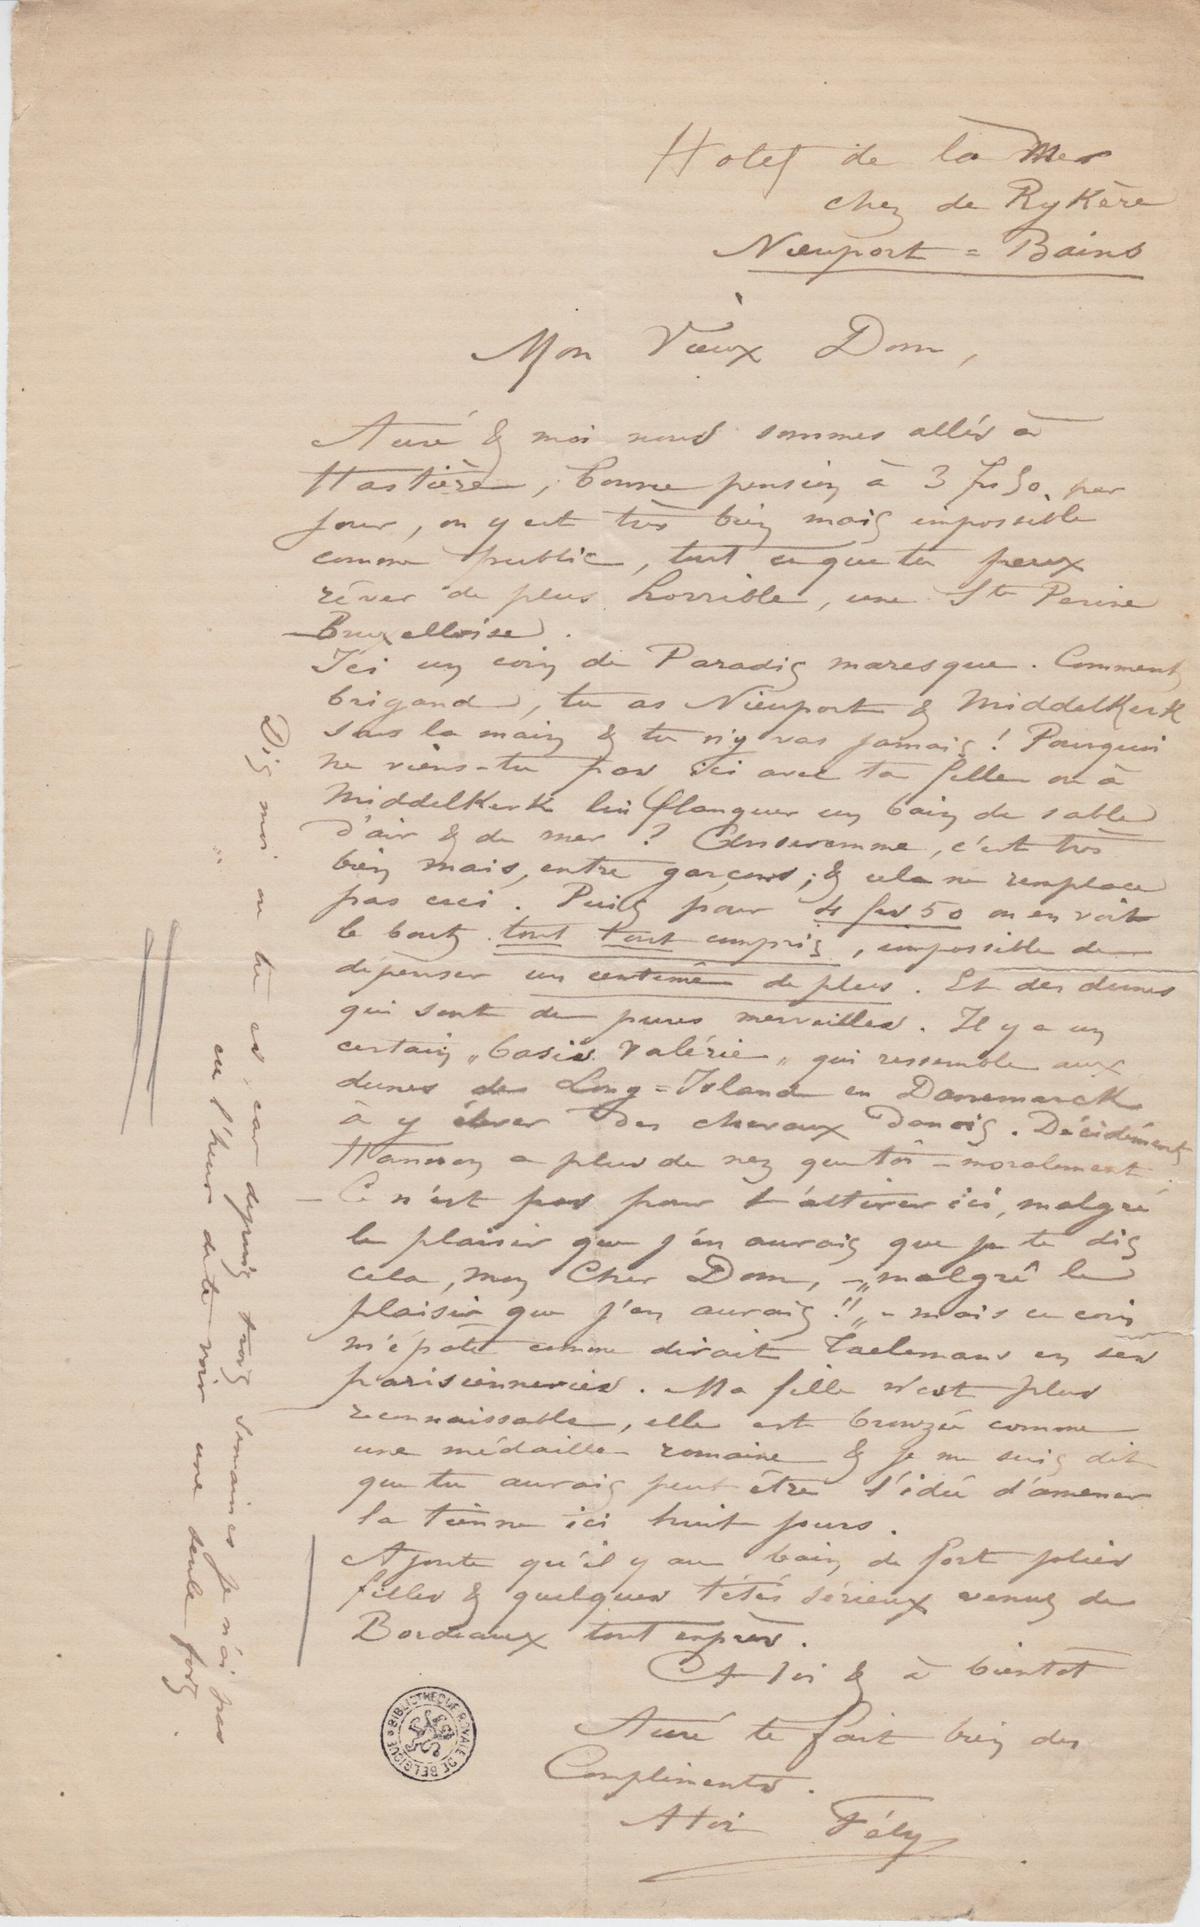 Hotel de la Mer
chez de Rykère
Nieuport = Bains
Mon Vieux Dom,
Auré & moi nous sommes allés à
Hastière, bonne pension à 3 frs 50. par
jour, on y est très bien mais impossible
comme public, tout ce que tu peux
rêver de plus horrible, une Ste Perine
Bruxelloise.
Ici un coin de Paradis maresque. Comment
brigand, tu as Nieuport & Middelkerk
sous la main & tu n'y vas jamais ! Pourquoi
ne viens-tu pas ici avec ta fille ou à
Middelkerk lui flanquer un bain de sable
d'air & de mer ? Anseremme, c'est très
bien mais, entre garçons ; & cela ne remplace
pas ceci. Puis pour 4 frs 50 on en voit
le bout, tout tout compris, impossible de
dépenser un centime de plus. Et des dunes
qui sont de pures merveilles. Il y a un
certain „ Valérie „ qui ressemble aux
dunes de Long = Island en Danemarck
à y élever des chevaux danois. Décidément
Hannon a plus de nez que toi – moralement.
– Ce n'est pas pour t'attirer ici, malgré
le plaisir que j'en aurais que je te dis
cela, mon Cher Dom, – „malgré le
plaisir que j'en aurais !!„ – mais ce coin
m'épate comme dirait Taelemans en ses
parisienneries. Ma fille n'est plus
reconnaissable, elle est bronzée comme
une médaille romaine & je me suis dit
que tu aurais peut être l'idée d'amener
la tienne ici huit jours.
Ajoute qu'il y a au bain de fort jolies
filles & quelques tétés sérieux venus de
Bordeaux tout exprès.
A toi & à bientot
Auré te fait bien des
Compliments.
A toi Fély
Dis moi où tu es car depuis trois semaines je n'ai pas
eu l'heur de te voir une seule fois.
BIBLIOTHEQUE ROYALE DE BELGIQUE